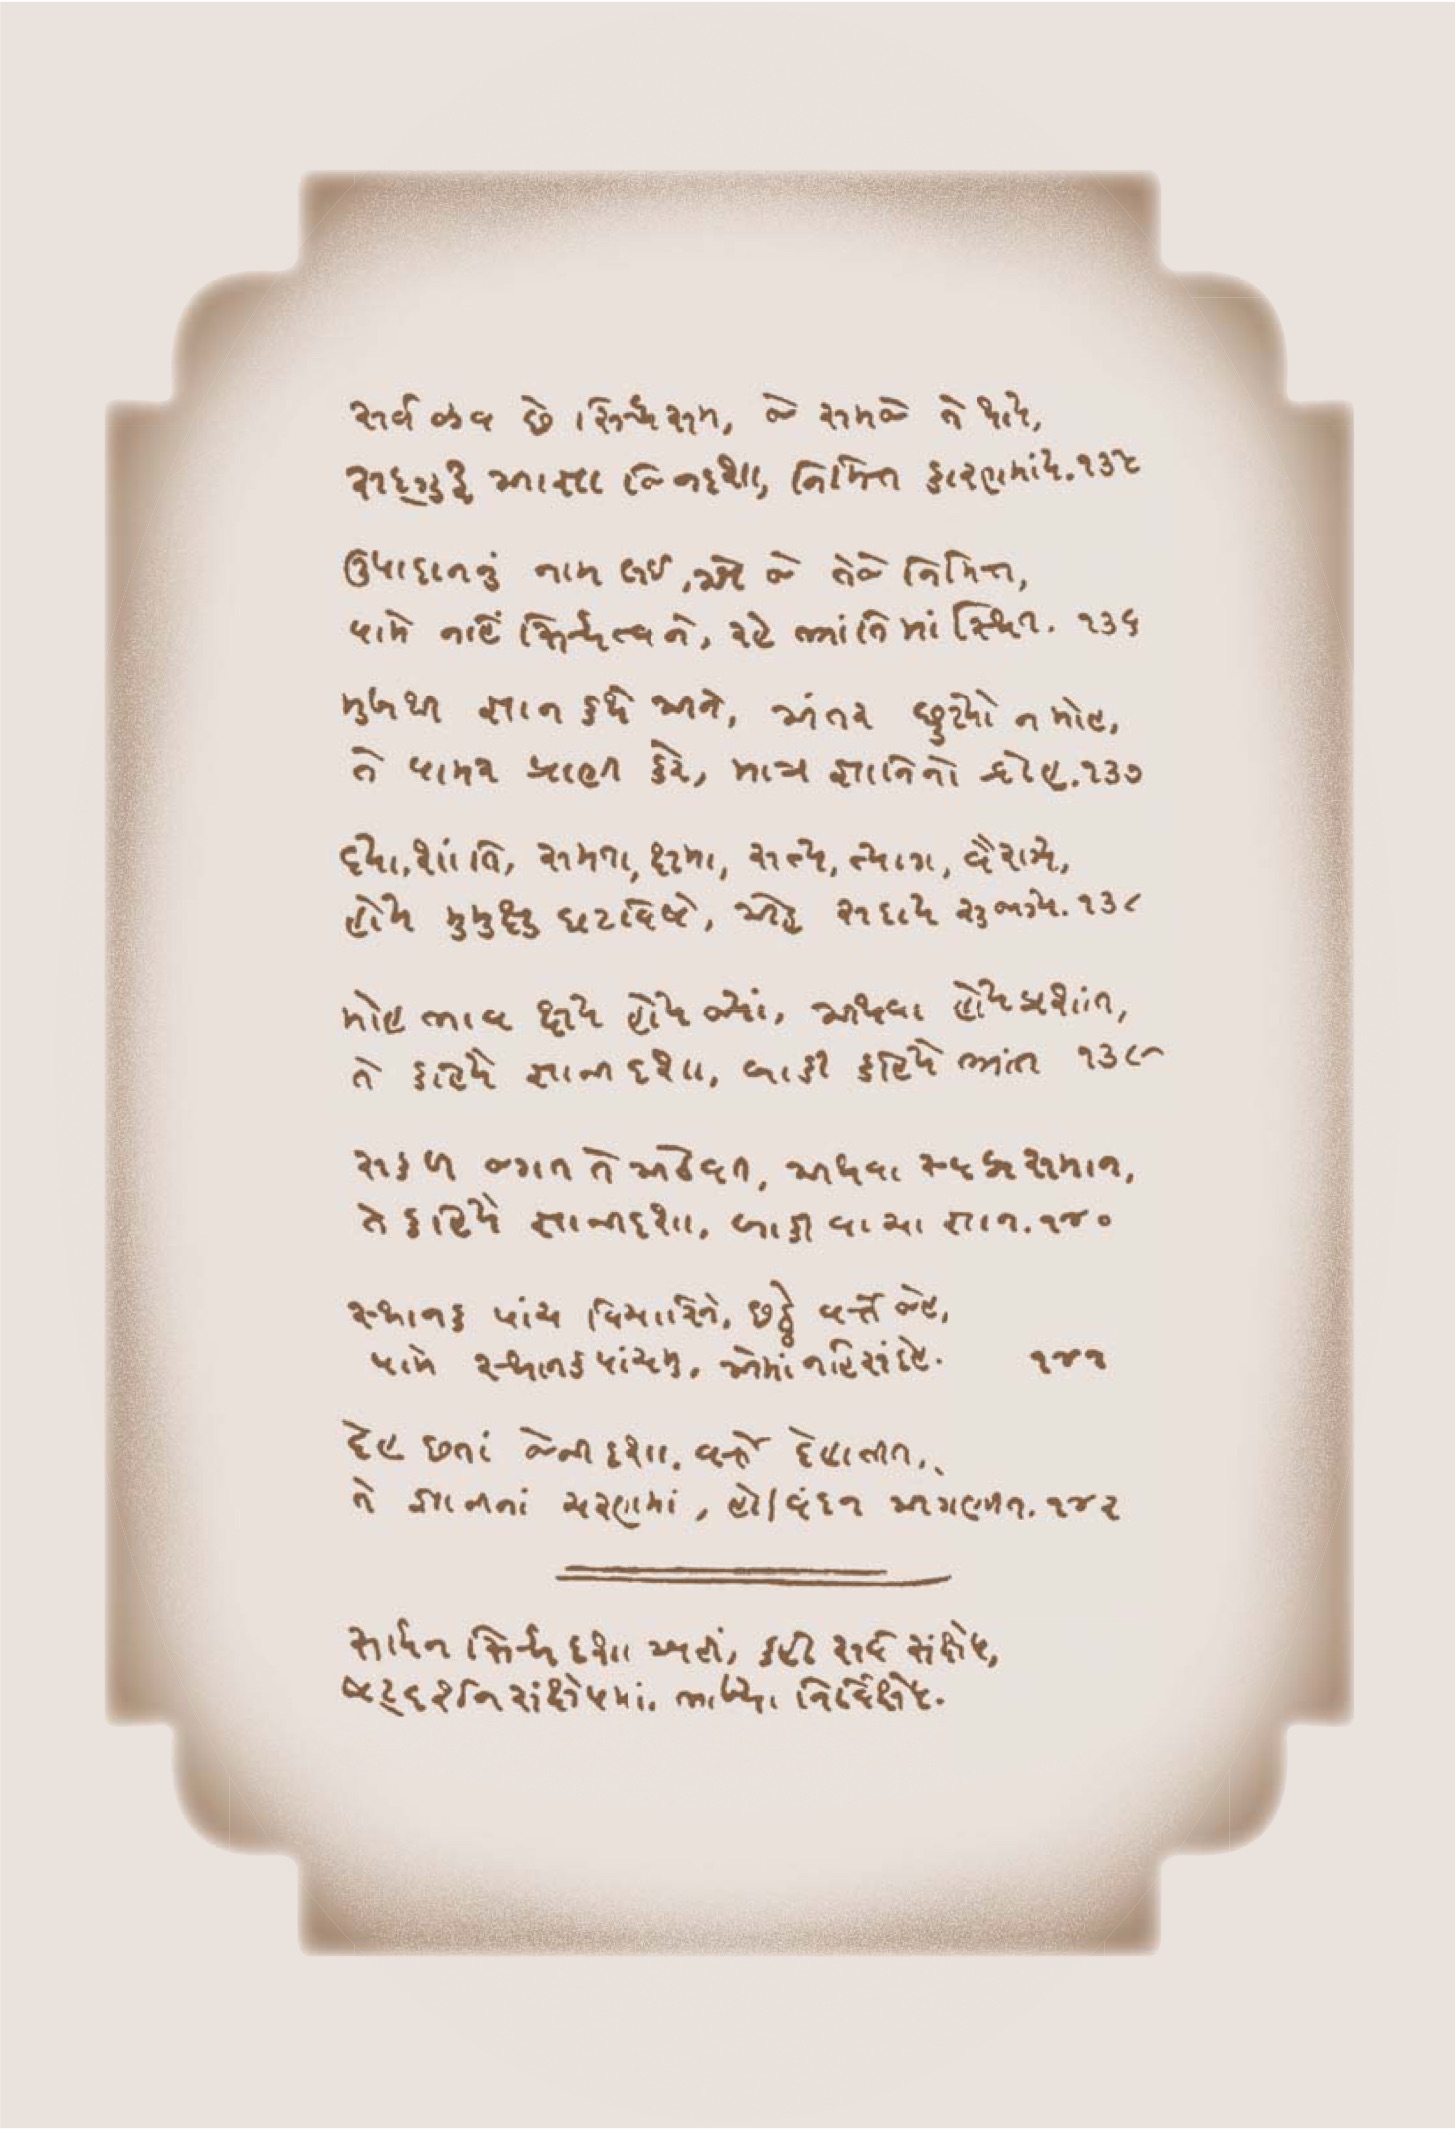 સર્વ જીવ છે સિદ્ધ સમ, જે સમજે તે થાય,
સદ્ગુરુ આજ્ઞા જિનદશા, નિમિત્ત કારણમાંય. ૧૩૫
ઉપાદાનનું નામ લઈ, એ જે તજે નિમિત્ત,
પામે નહિં સિદ્ધત્વને, રહે ભ્રાંતિમાં સ્થિત. ૧૩૬
મુખથી જ્ઞાન કથે અને, અંતર છુટ્યો ન મોહ,
તે પામર પ્રાણી કરે, માત્ર જ્ઞાનિનો દ્રોહ. ૧૩૭
દયા, શાંતિ, સમતા, ક્ષમા, સત્ય, ત્યાગ, વૈરાગ્ય,
હોય મુમુક્ષુ ઘટવિષે, એહ સદાય સુજાગ્ય. ૧૩૮
મોહભાવ ક્ષય હોય જ્યાં, અથવા હોય પ્રશાંત,
તે કહિયે જ્ઞાની દશા, બાકી કહિયે ભ્રાંત ૧૩૯
સકળ જગત તે એઠવત, અથવા સ્વપ્ન સમાન,
તે કહિયે જ્ઞાનીદશા, બાકી વાચા જ્ઞાન. ૧૪૦
સ્થાનક પાંચ વિચારિને, છઠ્ઠે વર્ત્તે જેહ,
પામે સ્થાનક પાંચમુ, એમાં નહિ સંદેહ. ૧૪૧
દેહ છતાં જેની દશા, વર્ત્તે દેહાતીત,
તે જ્ઞાનીનાં ચરણમાં, હો! વંદન અગણીત. ૧૪૨
સાધન સિદ્ધ દશા અહીં, કહી સર્વ સંક્ષેપ,
ષટ્દર્શન સંક્ષેપમાં, ભાખ્યા નિર્વિક્ષેપ.